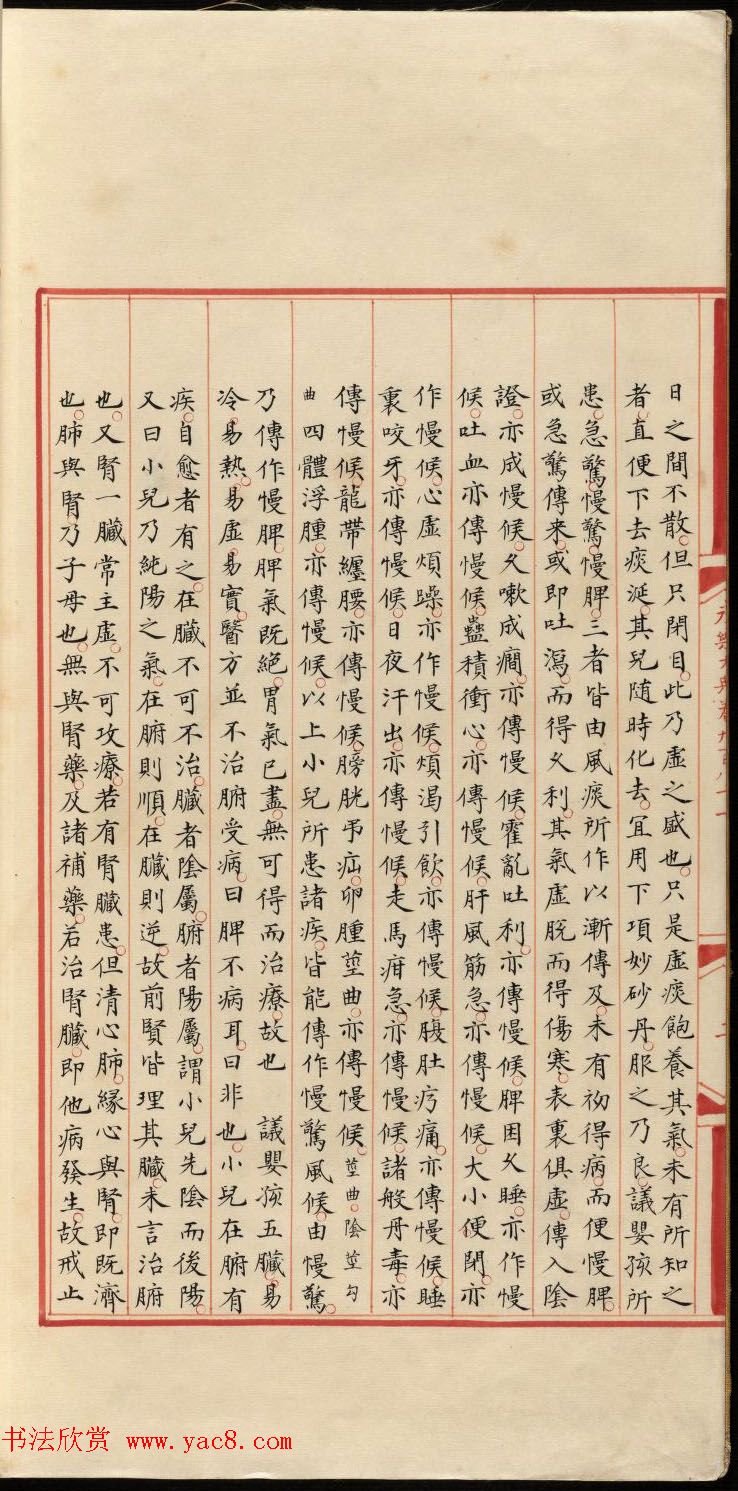 日之間不散但只閉目此乃虛之盛也只是虛痰飽養其氣未有所知之
者直便下去痰涎其兒随時化去冝用下項妙砂丹服之乃良議嬰孩所
患急驚慢驚慢脾三者皆由風痰所作以漸傳及未有初得病而便慢脾
或急驚傳来或即吐瀉而得久利其氣虛脫而得傷寒表裏俱虛傳入陰
證亦成慢候久嗽成癎亦傳慢候霍亂吐利亦傳慢候脾困久睡亦作慢
候吐血亦傳慢候蠱積衝心亦傳慢候肝風筋急亦傳慢候大小便閉亦
作慢候心虛煩躁亦作慢候煩渴引飲亦傳慢候腹肚疞痛亦傳慢候睡
裏咬牙亦傳慢候日夜汗出亦傳慢候走馬疳急亦傳慢候諸般丹毒亦
傳慢候龍帶纏腰亦傳慢候膀胱弔疝卵腫莖曲亦傳慢候莖曲陰莖勾
曲四體浮腫亦傳慢候以上小兒所患諸疾皆能傳作慢驚風候由慢驚
乃傳作慢脾脾氣既絕胃氣已盡無可得而治療故也 議嬰孩五臟易
冷易熱易虛易實醫方並不治腑受病曰脾不病耳曰非也小兒在腑有
疾自愈者有之在臟不可不治臟者陰屬腑者陽屬謂小兒先陰而後陽
又曰小兒乃純陽之氣在腑則順在臟則逆故前賢皆理其臟未言治腑
也又腎一臟常主虛不可攻療若有腎臟患但清心肺緣心與腎即既濟
也肺與腎乃子母也無與腎藥及諸補藥若治腎臟即他病發生故戒止
永樂大典卷九百八十一
二
书法欣赏 www.yac8.com